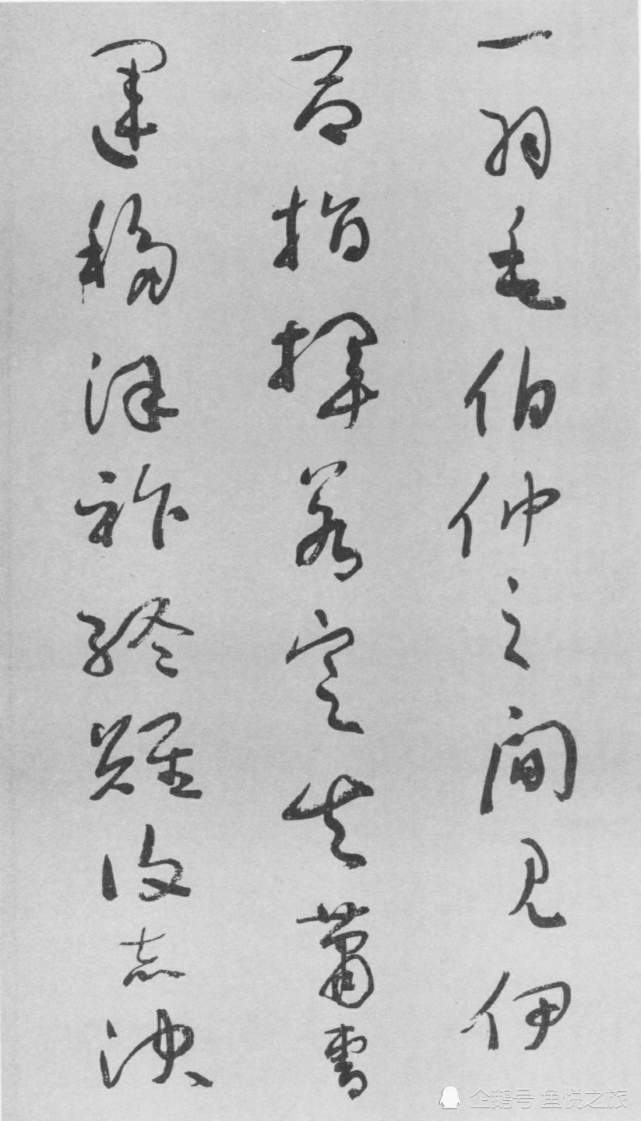 一羽毛伯仲之間見伊
呂指揮若定失蕭曹
運移漢祚終難復志決
企鹅号 鱼悦之旅